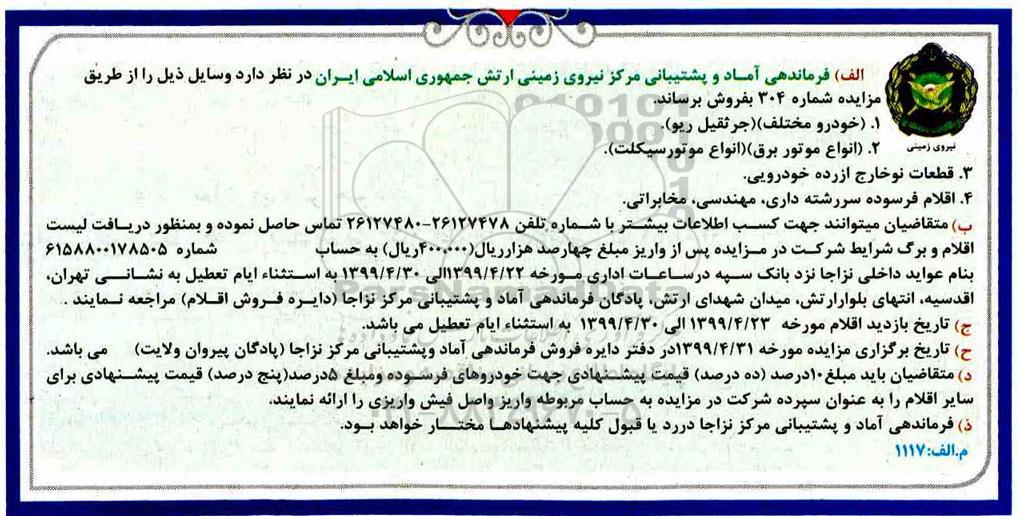 الف) فرماندهی آماد و پشتیبانی مرکز نیروی زمینی ارتش جمهوری اسلامی ایران در نظر دارد وسایل ذیل را از طریق
مزایده شماره ۳۰۴ بفروش برساند.
۱. (خودرو مختلف)(جرثقیل ریو).
۲. (انواع موتور برق)(انواع موتورسیکلت).
نیروی زمینی
۳. قطعات نوخارج ازرده خودرویی.
۴. اقلام فرسوده سررشته داری، مهندسی، مخابراتی.
ب) متقاضیان میتوانند جهت کسب اطلاعات بیشتر با شماره تلفن ۲۶۱۲۷۴۷۸-۲۶۱۲۷۴۸۰ تماس حاصل نموده و بمنظور دریافت لیست
اقلام و برگ شرایط شرکت در مزایده پس از واریز مبلغ چهارصد هزارریال(۴۰۰۰۰۰ریال) به حساب شماره ۶۱۵۸۸۰۰۱۷۸۵۰۵
بنام عواید داخلی نزاجا نزد بانک سپه درساعات اداری مورخه ۱۳۹۹/۴/۲۲الی ۱۳۹۹/۴/۳۰ به استثناء ایام تعطیل به نشانی تهران،
اقدسیه، انتهای بلوارارتش، میدان شهدای ارتش، پادگان فرماندهی آماد و پشتیبانی مرکز نزاجا (دایره فروش اقلام) مراجعه نمایند .
ج) تاریخ بازدید اقلام مورخه ۱۳۹۹/۴/۲۳ الی ۱۳۹۹/۴/۳۰ به استثناء ایام تعطیل می باشد.
ح) تاریخ برگزاری مزایده مورخه ۱۳۹۹/۴/۳۱در دفتر دایره فروش فرماندهی آماد وپشتیبانی مرکز نزاجا (پادگان پیروان ولایت) می باشد.
د) متقاضیان باید مبلغ۱۰درصد (ده درصد) قیمت پیشنهادی جهت خودروهای فرسوده ومبلغ ۵درصد(پنج درصد) قیمت پیشنهادی برای
سایر اقلام را به عنوان سپرده شرکت در مزایده به حساب مربوطه واریز واصل فیش واریزی را ارائه نمایند.
ذ) فرماندهی آماد و پشتیبانی مرکز نزاجا دررد یا قبول کلیه پیشنهادها مختار خواهد بود.
م.الف:۱۱۱۷
ParsNamadData
۰۲۱-۸۸۳۴۹۶۷۰-۵